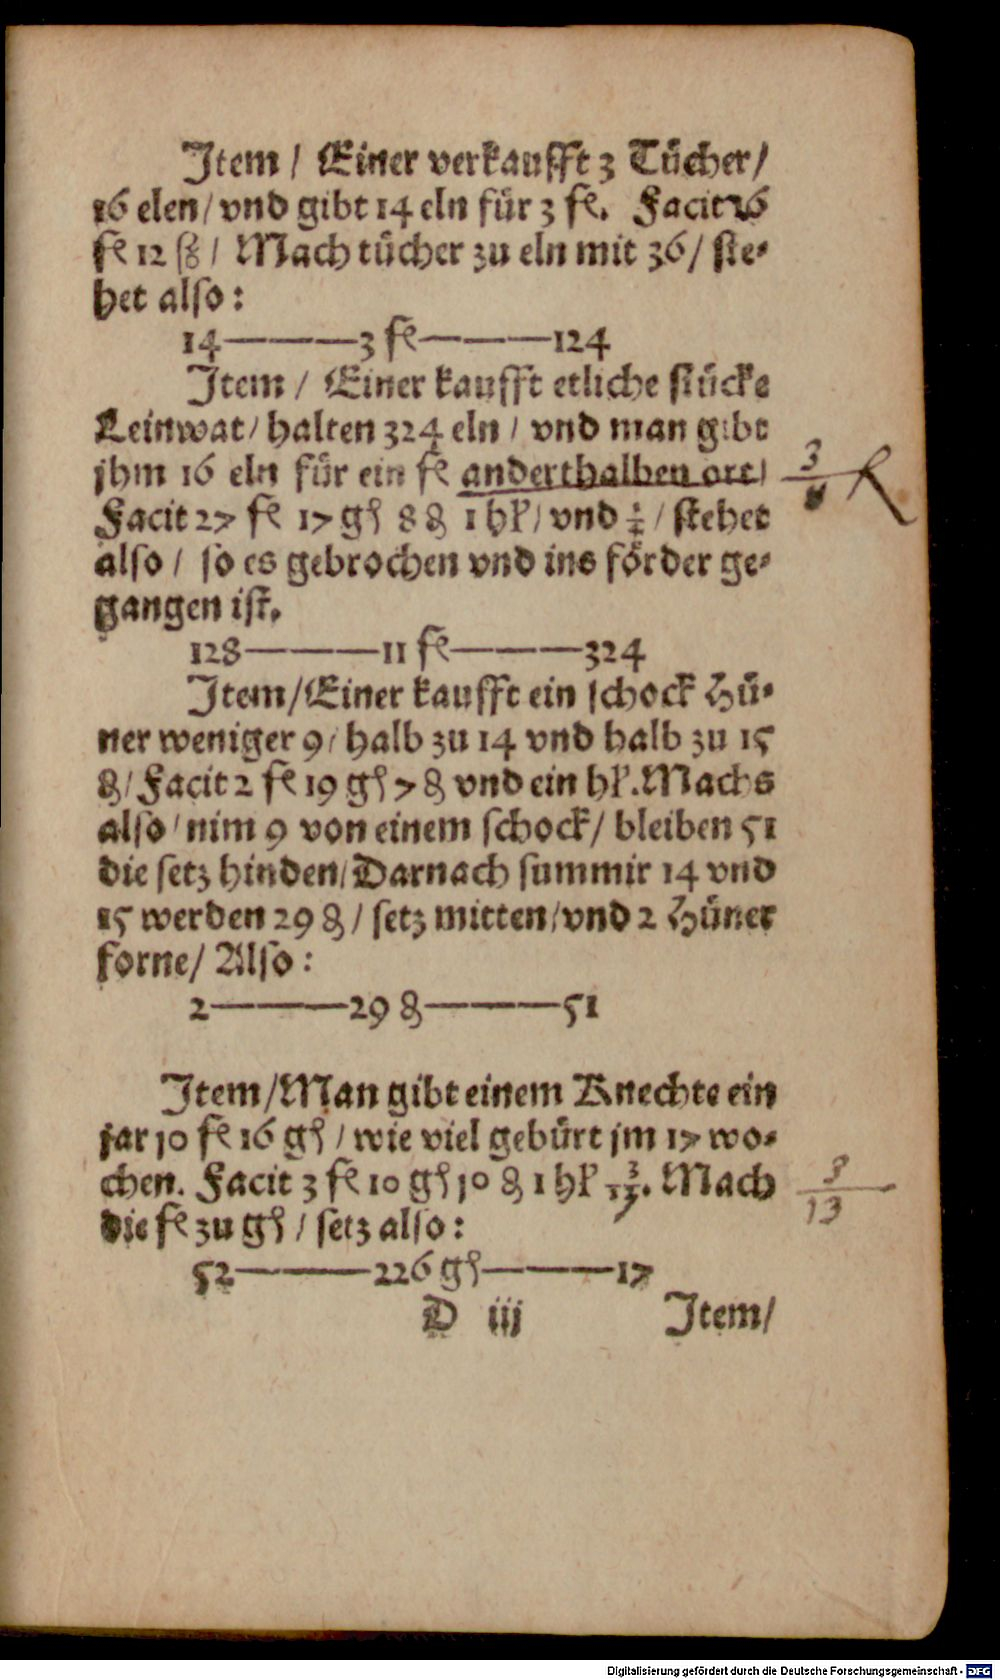 Item / Einer verkaufft 3 Tücher /
16 elen / vnd gibt 14 eln für 3 fl. Facit 26
fl 12 ß / Mach tücher zu eln mit 36 / ste-
het also:
14———3 fl———124
Item / Einer kaufft etliche stücke
Leinwat / halten 324 eln / vnd man gibt
jhm 16 eln für ein fl anderthalben ort /
3
8
Facit 27 fl 17 gß 8 ₰ 1 hl / vnd ¼ / stehet
also / so es gebrochen vnd ins förder ge-
gangen ist.
128———11 fl———324
Item / Einer kaufft ein schock Hü-
ner weniger 9 / halb zu 14 vnd halb zu 15
₰ / Facit 2 fl 19 gß 7 ₰ vnd ein hl. Machs
also / nim 9 von einem schock / bleiben 51
die setz hinden / Darnach summir 14 vnd
15 werden 29 ₰ / setz mitten / vnd 2 Hüner
forne / Also:
2———29 ₰———51
Item / Man gibt einem Knechte ein
jar 10 fl 16 gß / wie viel gebürt jm 17 wo-
chen. Facit 3 fl 10 gß 10 ₰ 1 hl 3/13. Mach
3
13
die fl zu gß / setz also:
52———226 gß———17
D iij Item /
Digitalisierung gefördert durch die Deutsche Forschungsgemeinschaft - DFG